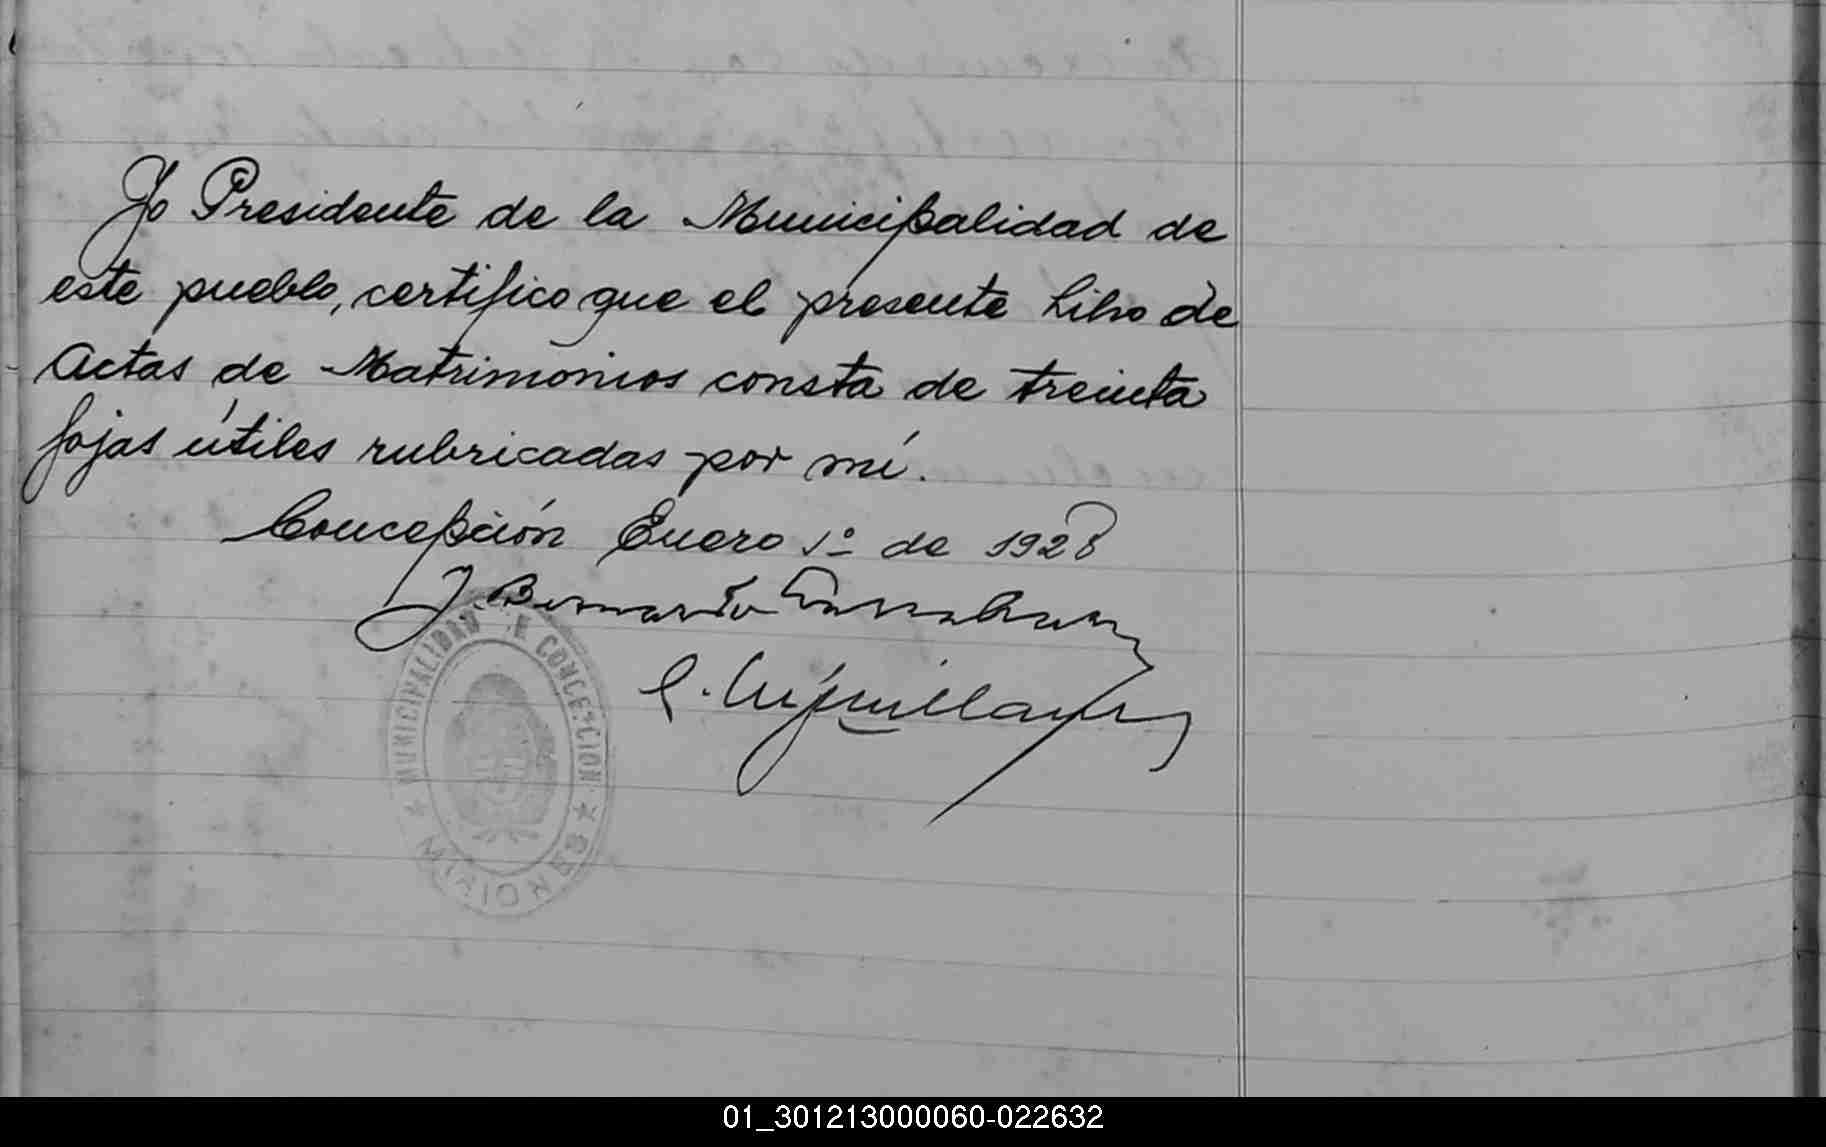 Yo Presidente de la Municipalidad de
este pueblo, certifico que el presente Libro de
Actas de Matrimonios consta de treinta
fojas útiles rubricadas por mí.
Concepción Enero 1º de 1928
J. Bernardo
MUNICIPALIDAD DE CONCEPCION
MISIONES
01_301213000060-022632